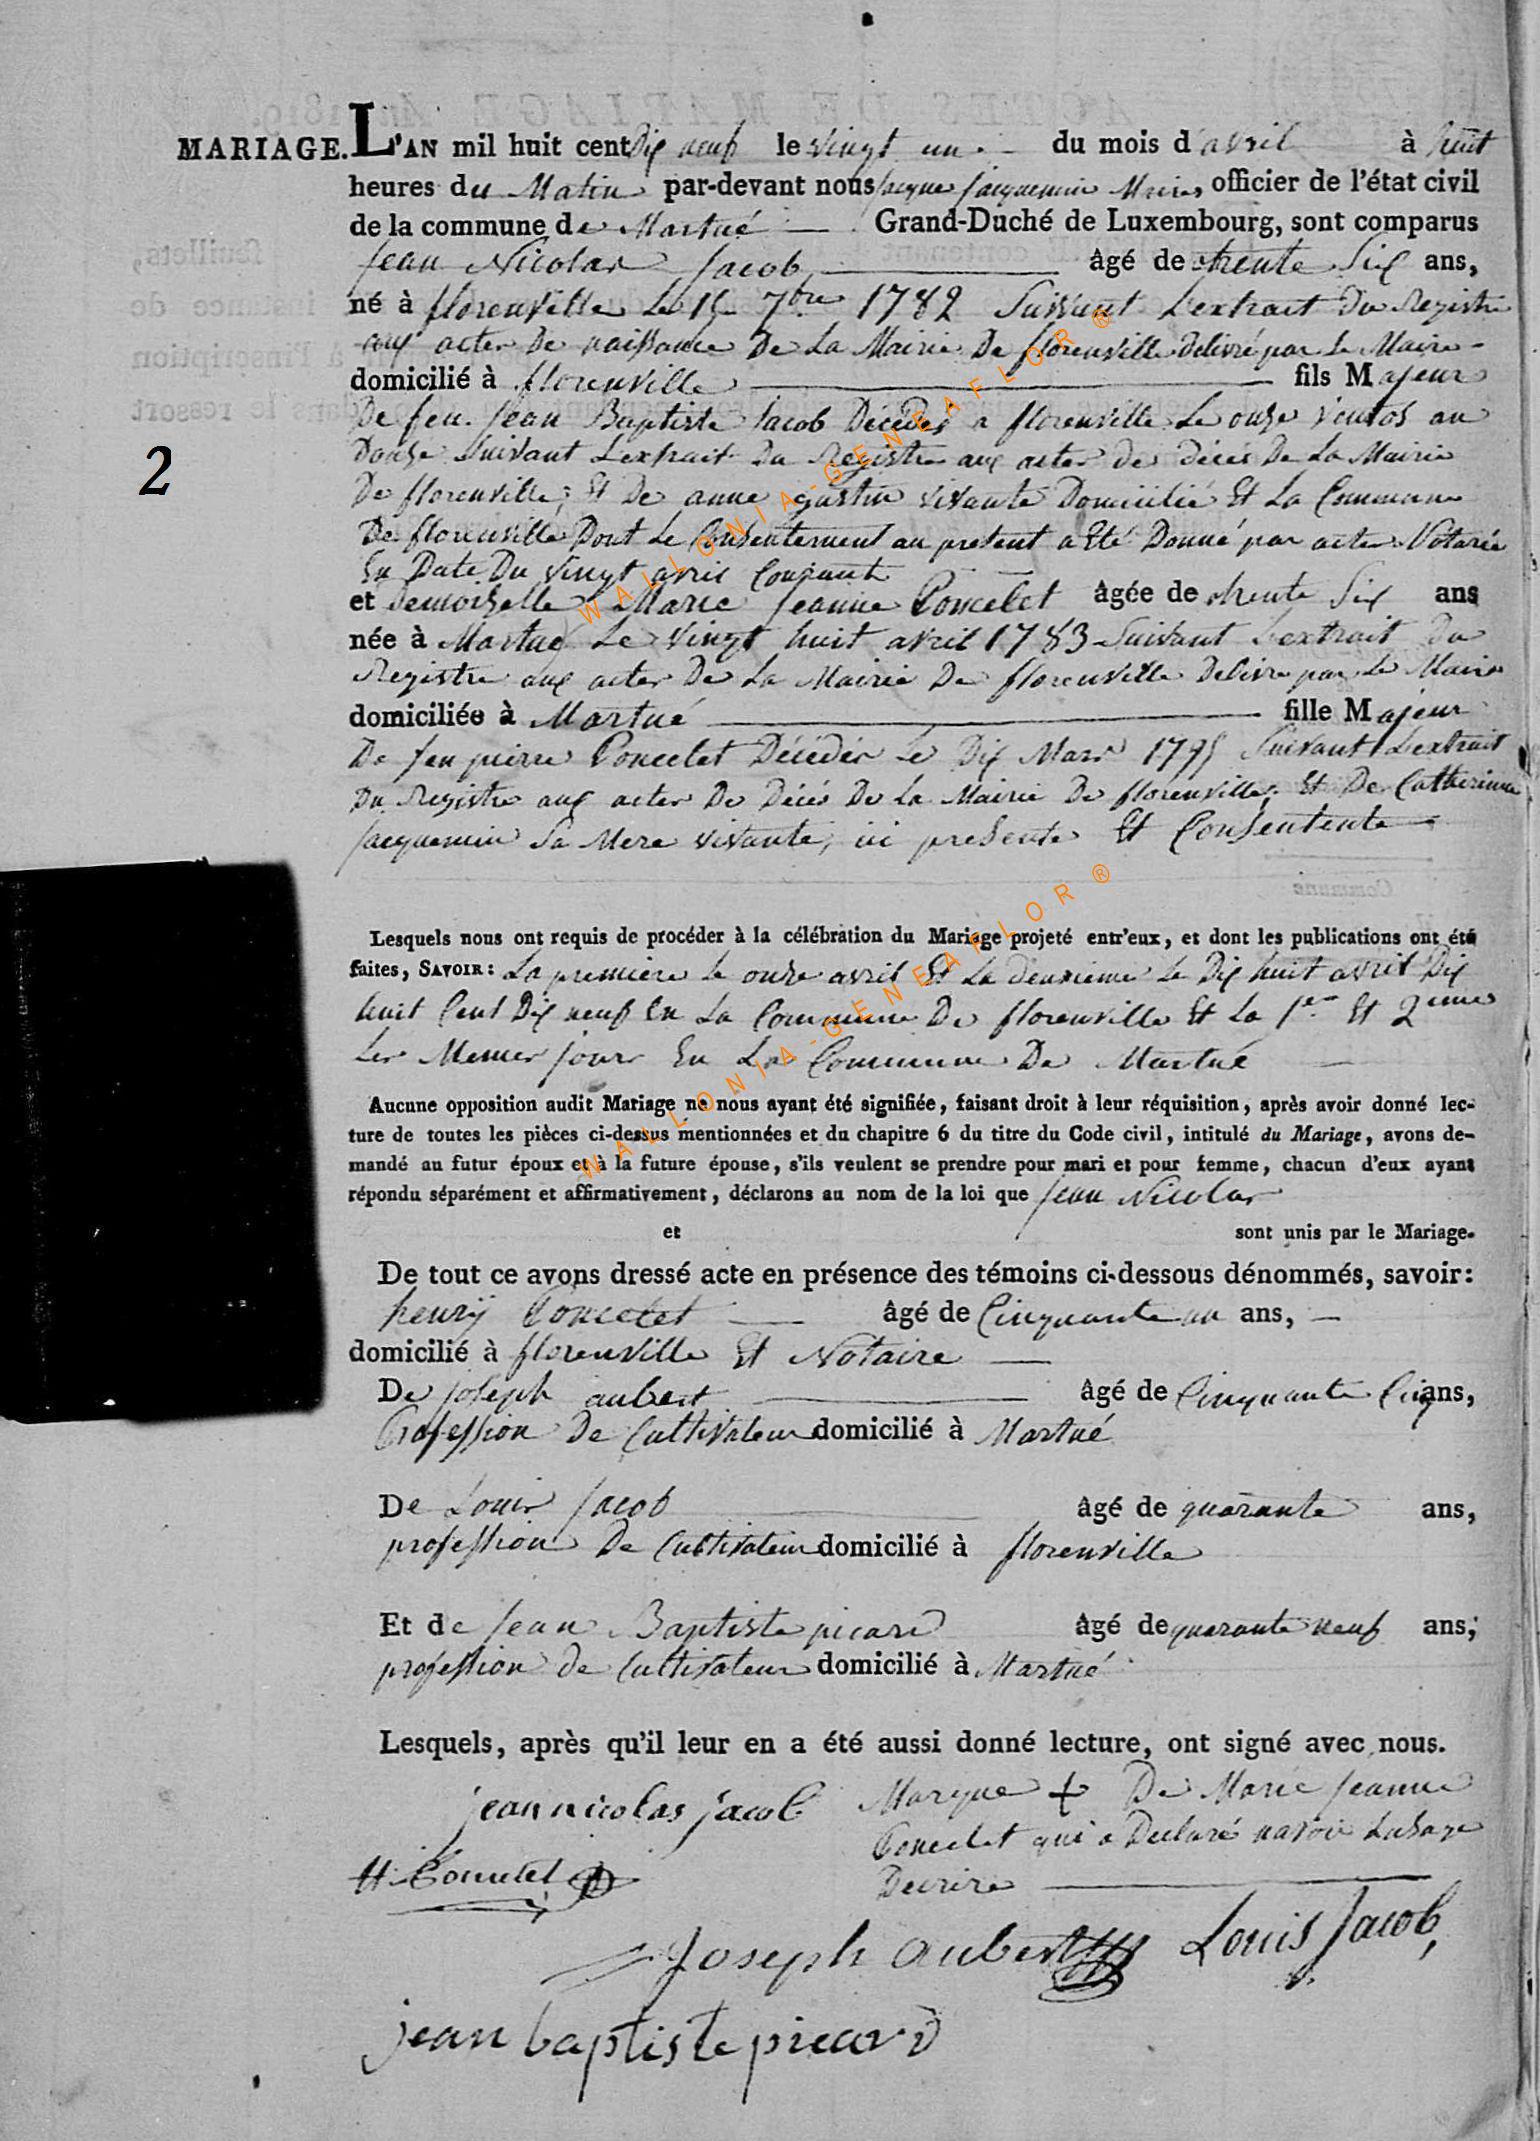 MARIAGE. L'AN mil huit cent Dix neuf le vingt un du mois d'avril à huit
heures du Matin par-devant nous jacque jacquemin Maire officier de l'état civil
de la commune de Martué Grand-Duché de Luxembourg, sont comparus
Jean Nicolas Jacob âgé de trente Six ans,
né à florenville Le 15 7bre 1782 Suivant L'extrait Du Registre
aux actes De naissance De La Mairie De florenville Delivré par Le Maire
domicilié à florenville fils Majeur
De feu Jean Baptiste Jacob Décédés a florenville Le onze ventos an
Douze Suivant L'extrait Du Registre aux actes de décés De La Mairie
De florenville; Et De anne gustin vivante Domicilié Et La Commune
De florenville Dont Le Consentement au present a Eté Donné par acte Notarié
En Date Du vingt avril Courant
et Demoiselle Marie Jeanne Poncelet âgée de trente Six ans
née à Martué Le vingt huit avril 1783 Suivant L'extrait Du
Registre aux actes De La Mairie De florenville Delivre par Le Maire
domiciliée à Martué fille Majeur
De feu pierre Poncelet Décédés Le Dix Mars 1795 Suivant L'extrait
Du Registre aux actes De Décés De La Mairie De florenville, Et De Catherinne
jacquemin Sa Mere vivante, ici presente Et Consentente
Lesquels nous ont requis de procéder à la célébration du Mariage projeté entr'eux, et dont les publications ont été
faites, SAVOIR: La premiere le onze avril Et La deuxieme Le Dix huit avril Dix
huit Cent Dix neuf En La Commune De florenville Et La 1re Et 2eme
Les Memes jours En La Commune De Martué
Aucune opposition audit Mariage ne nous ayant été signifiée, faisant droit à leur réquisition, après avoir donné lec-
ture de toutes les pièces ci-dessus mentionnées et du chapitre 6 du titre du Code civil, intitulé du Mariage, avons de-
mandé au futur époux et à la future épouse, s'ils veulent se prendre pour mari et pour femme, chacun d'eux ayant
répondu séparément et affirmativement, déclarons au nom de la loi que Jean Nicolas
et sont unis par le Mariage.
De tout ce avons dressé acte en présence des témoins ci-dessous dénommés, savoir:
henrÿ Poncelet âgé de Cinquante un ans,
domicilié à florenville Et Notaire
De joseph aubert âgé de Cinquante Cinq ans,
Profession De Cultivateur domicilié à Martué
2
De Louis Jacob âgé de quarante ans,
profession De Cultivateur domicilié à florenville
Et de Jean Baptiste picard âgé de quarante neuf ans;
profession de Cultivateur domicilié à Martué
Lesquels, après qu'il leur en a été aussi donné lecture, ont signé avec nous.
jean nicolas jacob Marque + De Marie Jeanne
Poncelet qui a Declaré navoir Lusage
H. Poncelet Decrire
Joseph aubert Louis Jacob,
jean baptiste picard
WALLONIA-GENEAFLOR ®
WALLONIA-GENEAFLOR ®